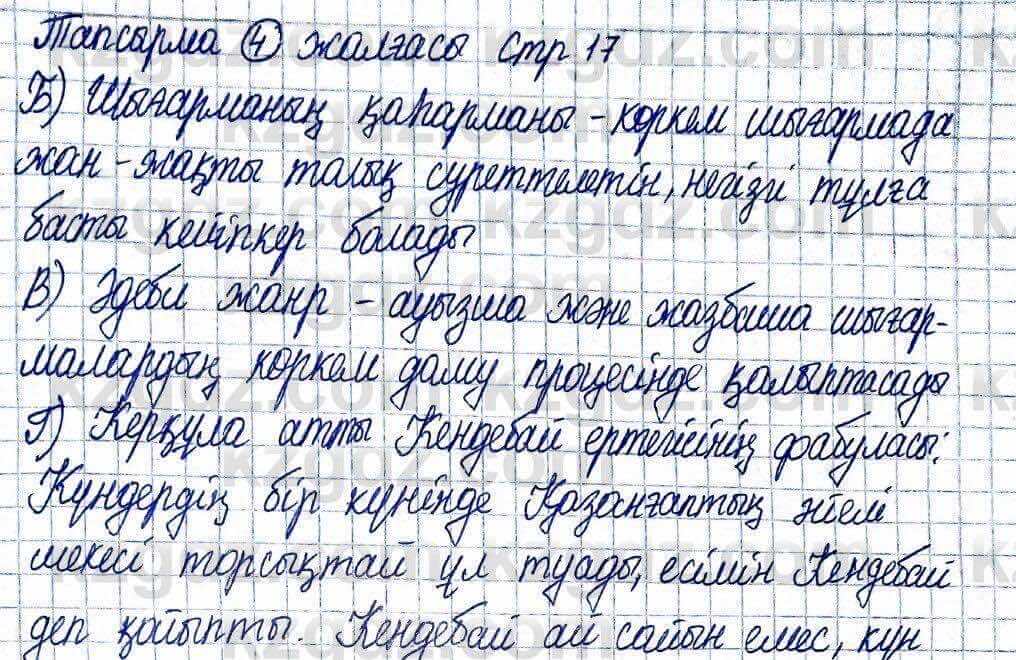 Тапсырма 4 жалғасы стр 17
Б) Шығарманың қаһарманы - көркем шығармада
жан - жақты толық суреттелетін, негізгі тұлға
басты кейіпкер болады
В) Әдеби жанр - ауызша және жазбаша шығар-
малардың көркем даму процесінде қалыптасады
Г) Керқұла атты Кендебай ертегісінің фабуласы:
Күндердің бір күнінде Қазанғаптың әйелі
шекесі торсықтай ұл туады, есімін Кендебай
деп қойыпты. Кендебай ай сайын емес, күн